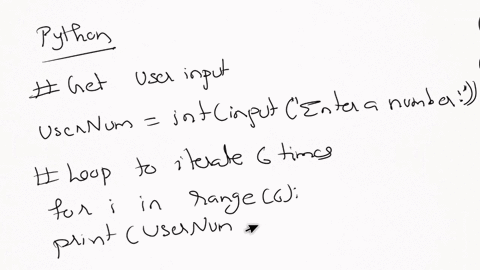 Python
# Get User input
UserNum = int(input("Enter a number:"))
# Loop to iterate 6 times
for i in range(6):
print(UserNum